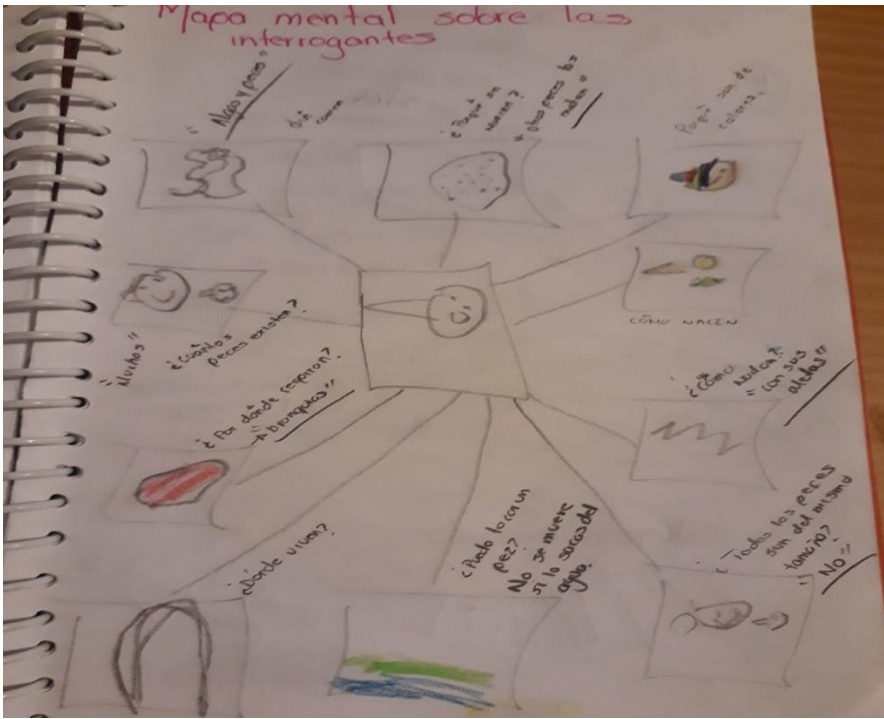 Mapa mental sobre las
interrogantes
"Algas y peces"
Qué
comen
¿Porqué se
mueren?
"Otros peces los
matan"
Porqué son de
colores
CÓMO NACEN
"Muchos"
¿Cuántos
peces existen?
¿Por dónde respiran?
¿Cómo
nadan?
"con sus
aletas"
¿Dónde viven?
¿Puedo tocar un
pez?
No se muere
si lo sacas del
agua.
¿Todos los peces
son del mismo
tamaño?
"No"